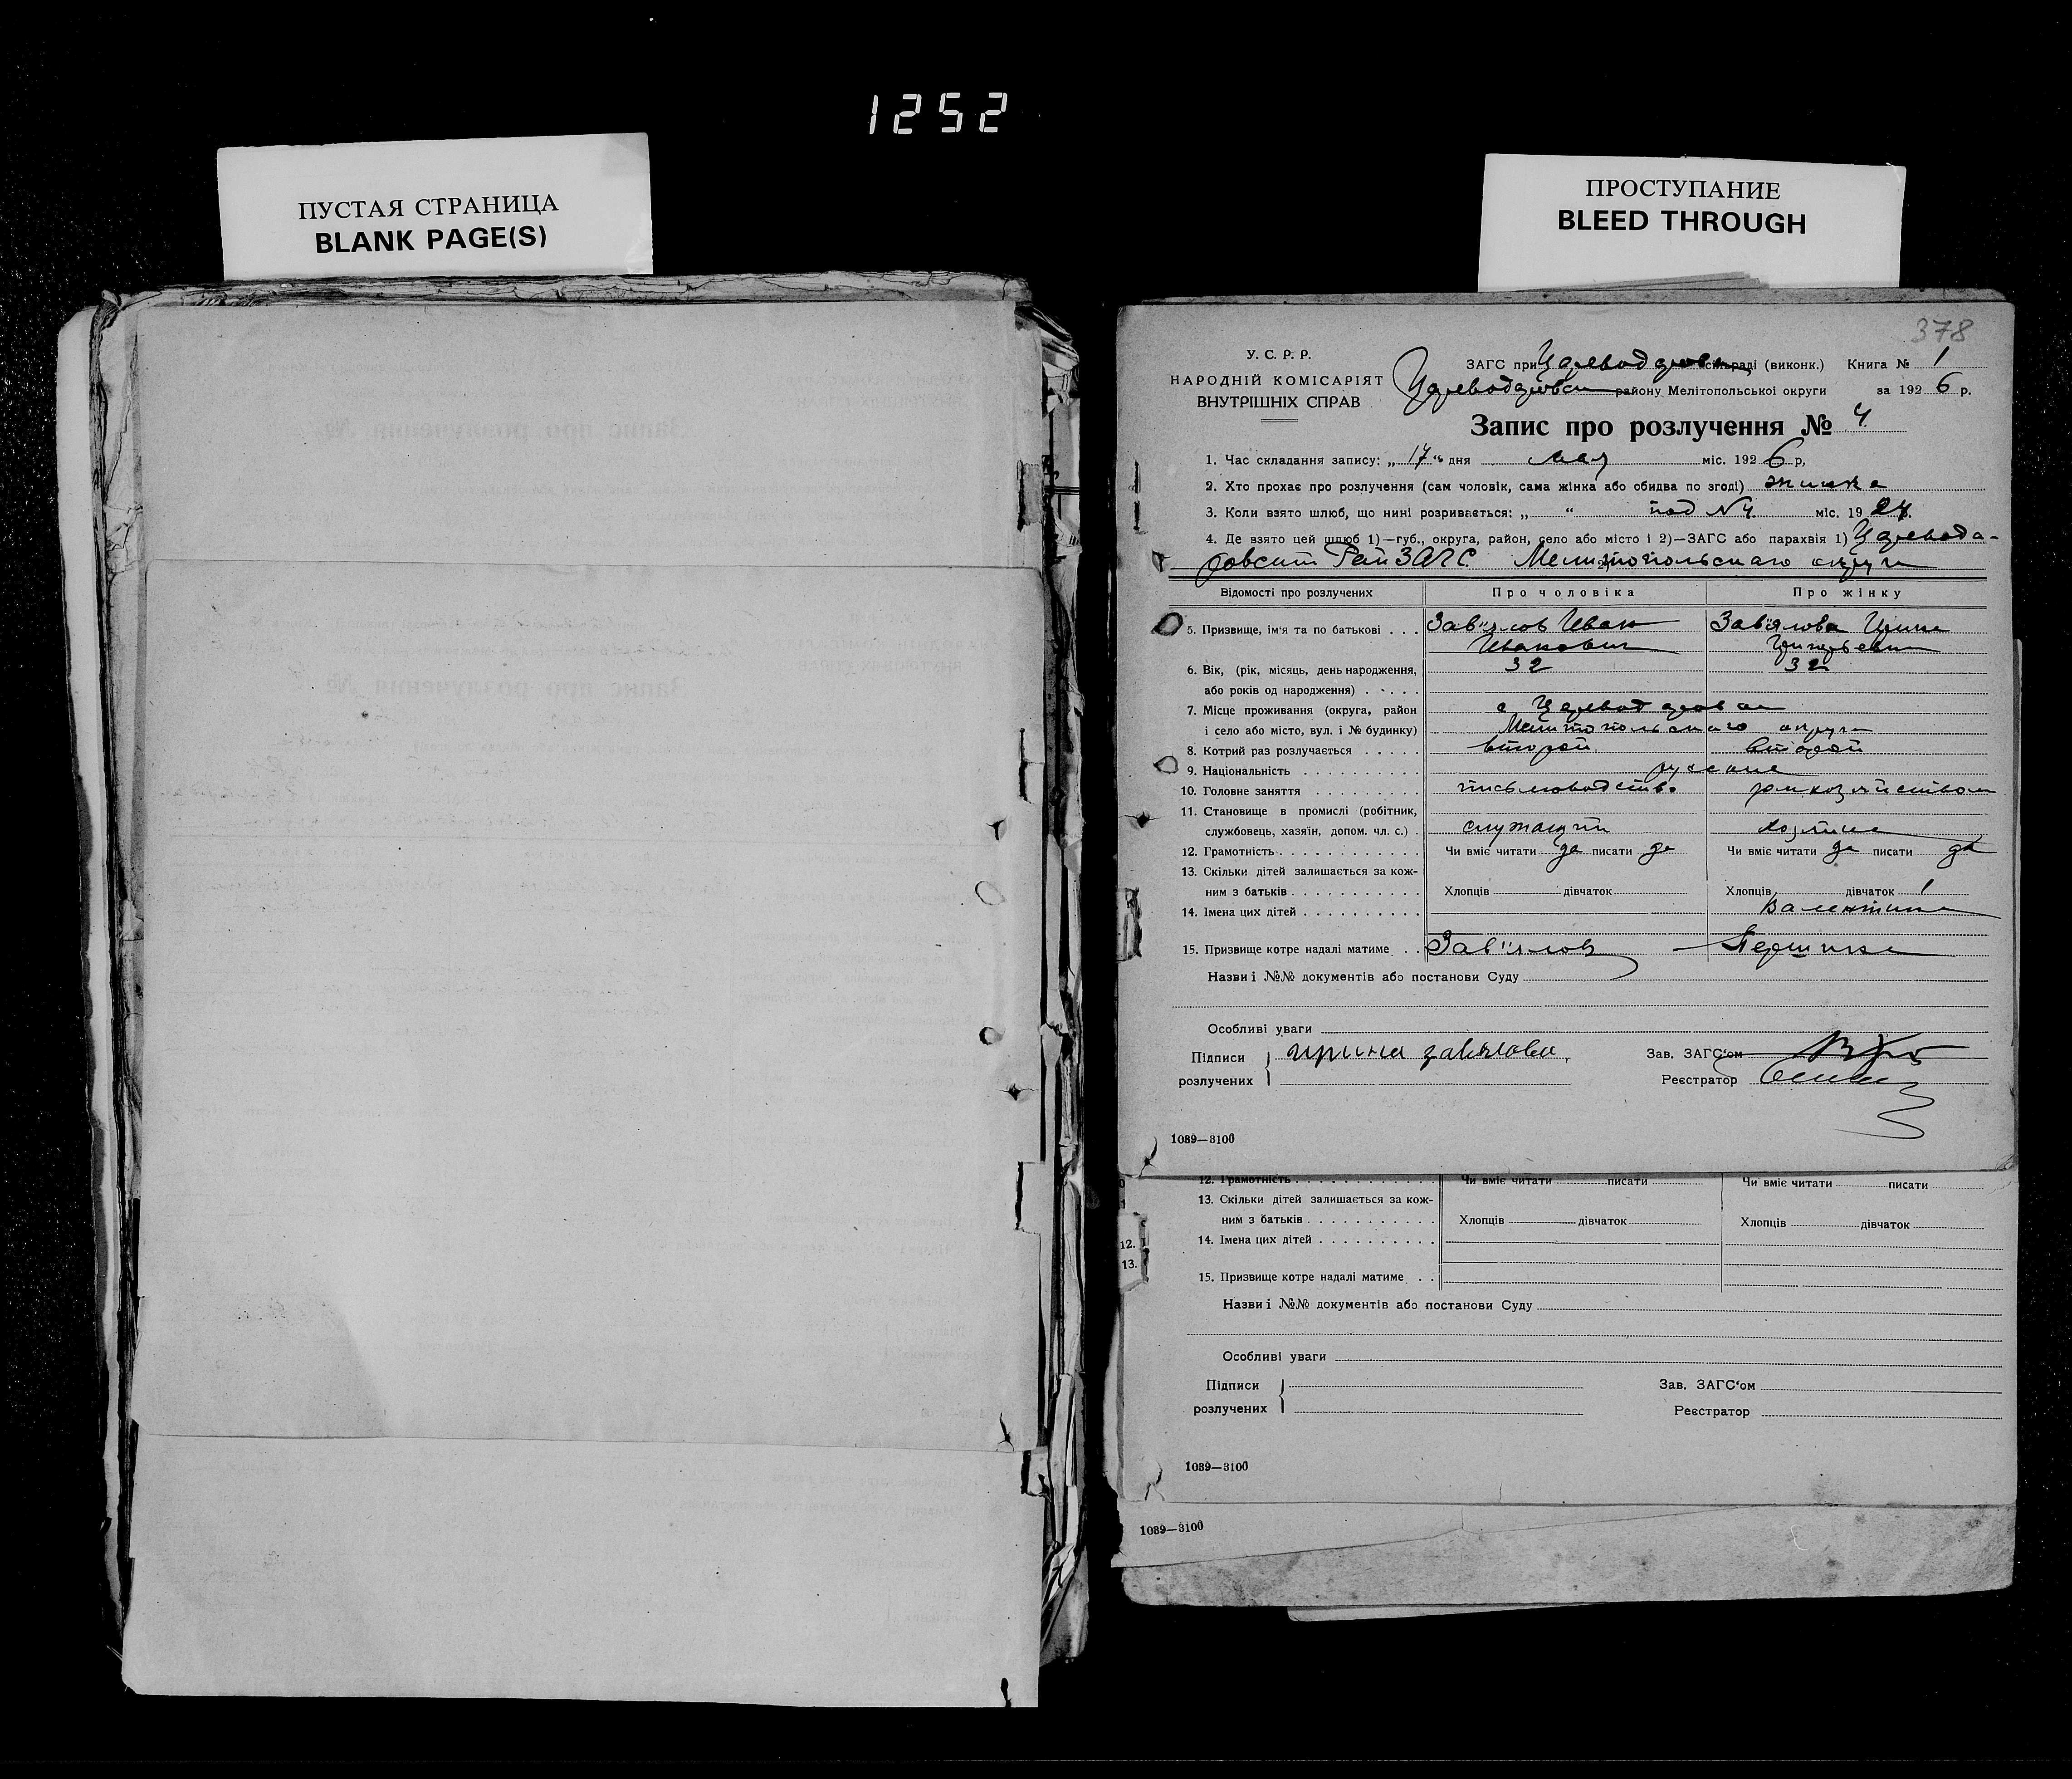 1252
ПУСТАЯ СТРАНИЦА
BLANK PAGE(S)
ПРОСТУПАНИЕ
BLEED THROUGH
378
У. С. Р. Р.
НАРОДНІЙ КОМІСАРІЯТ
ВНУТРІШНІХ СПРАВ
ЗАГС при сільраді (виконк.) Книга № 1
району Мелітопольської округи за 1926 р.
Запис про розлучення № 4
1. Час складання запису: „17“ дня мая міс. 1926 р,
2. Хто прохає про розлучення (сам чоловік, сама жінка або обидва по згоді) жинка
3. Коли взято шлюб, що нині розривається: „ “ под №4 міс. 1924.
4. Де взято цей шлюб 1)—губ., округа, район, село або місто і 2)—ЗАГС або парахвія 1) Царевода-
ровский РайЗАГС Мелитопольскаго округа
Відомості про розлучених Про чоловіка Про жінку
5. Призвище, ім'я та по батькові . . . Зав'ялов Иван Зав'ялова
Иванович
6. Вік, (рік, місяць, день народження, 32 32
або років од народження) . . . . .
7. Місце проживання (округа, район с
і село або місто, вул. і № будинку) Мелитопольскаго округа
8. Котрий раз розлучається . . . . . второй второй
9. Національність . . . . . . . . . . русские
10. Головне заняття . . . . . . . . . письмоводство
11. Становище в промислі (робітник,
службовець, хазяїн, допом. чл. с.) . служащий
12. Грамотність . . . . . . . . . . . . Чи вміє читати да писати да Чи вміє читати да писати да
13. Скільки дітей залишається за кож-
ним з батьків . . . . . . . . . . . Хлопців дівчаток Хлопців дівчаток 1
14. Імена цих дітей . . . . . . . . . . Валентина
15. Призвище котре надалі матиме . . Зав'ялов
Назви і №№ документів або постанови Суду
Особливі уваги
Підписи ирина завялова Зав. ЗАГС‘ом
розлучених Реєстратор
1089—3100
12. Грамотність . . . . . . . . . . . . Чи вміє читати писати Чи вміє читати писати
13. Скільки дітей залишається за кож-
ним з батьків . . . . . . . . . . . Хлопців дівчаток Хлопців дівчаток
12.
14. Імена цих дітей . . . . . . . . . .
13.
15. Призвище котре надалі матиме . .
Назви і №№ документів або постанови Суду
Особливі уваги
Підписи Зав. ЗАГС‘ом
розлучених Реєстратор
1089—3100
1089—3100